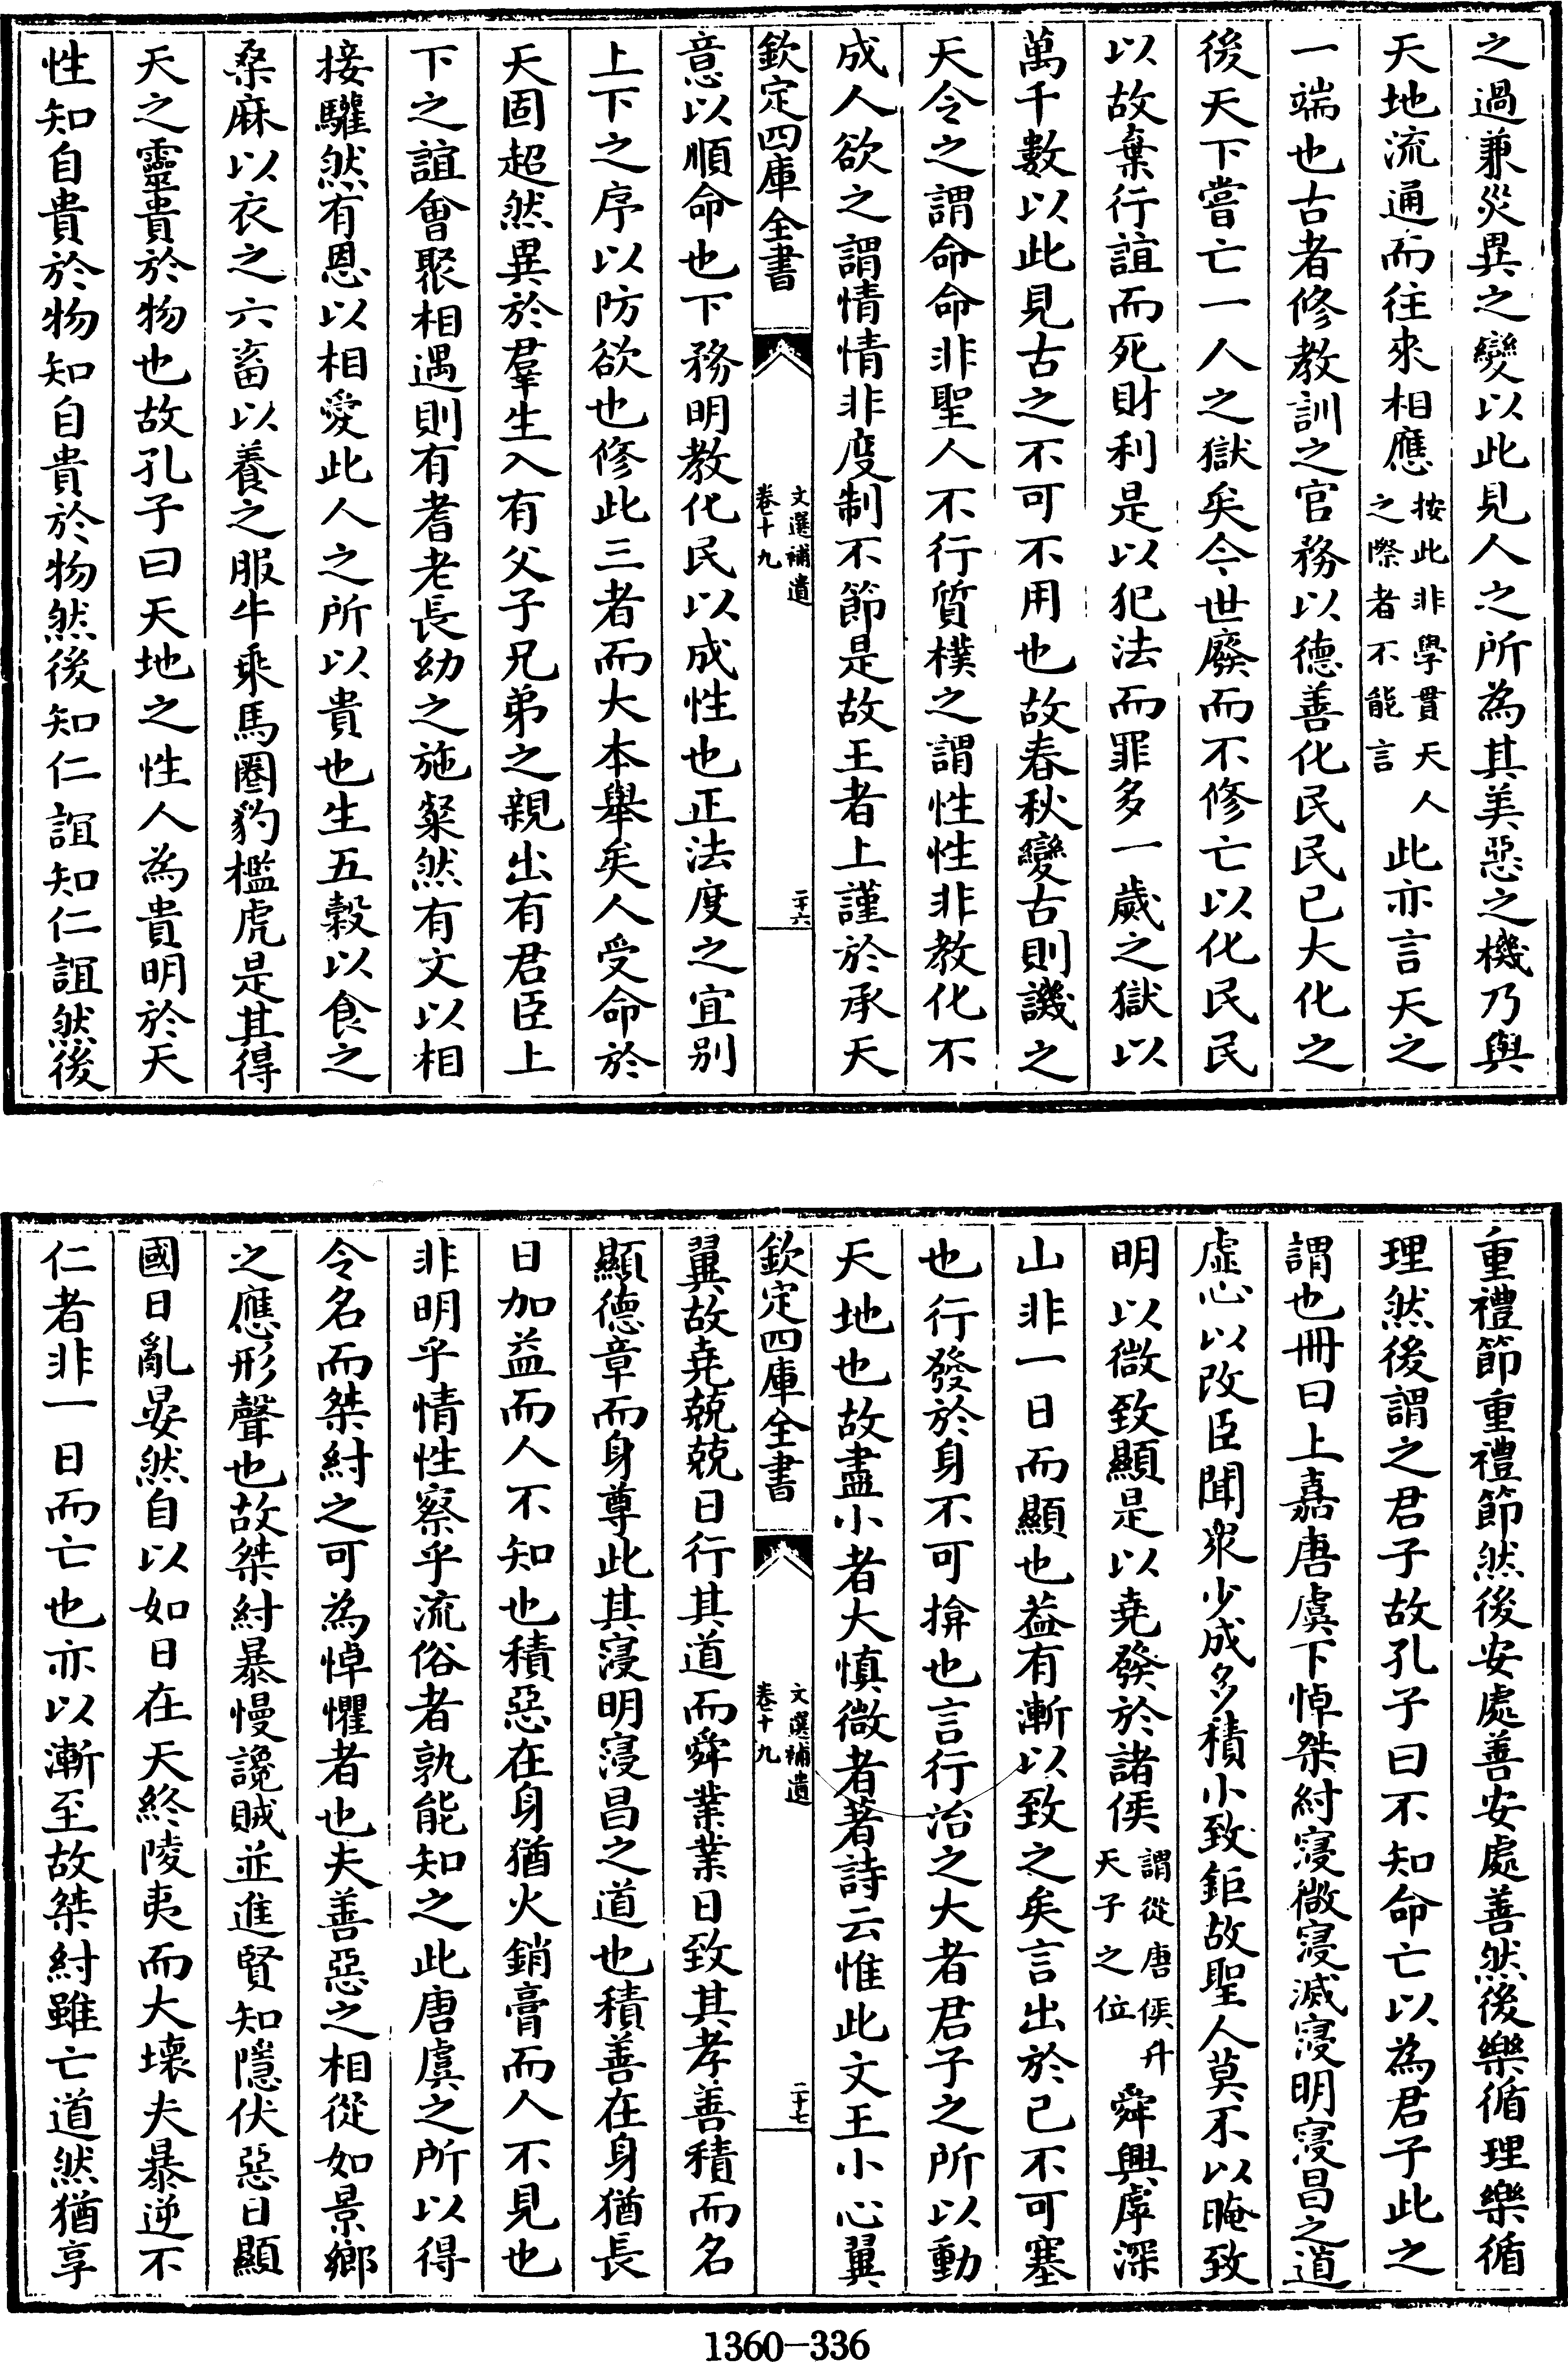 之過兼災異之變以此見人之所為其美惡之機乃與
天地流通而往來相應按此非學貫天人之際者不能言此亦言天之
一端也古者修教訓之官務以德善化民民已大化之
後天下嘗亡一人之獄矣今世廢而不修亡以化民民
以故棄行誼而死財利是以犯法而罪多一歲之獄以
萬千數以此見古之不可不用也故春秋變古則譏之
天令之謂命命非聖人不行質樸之謂性性非教化不
成人欲之謂情情非度制不節是故王者上謹於承天
欽定四庫全書
文選補遺
卷十九
二十六
意以順命也下務明教化民以成性也正法度之宜别
上下之序以防欲也修此三者而大本舉矣人受命於
天固超然異於羣生入有父子兄弟之親出有君臣上
下之誼會聚相遇則有耆老長幼之施粲然有文以相
接驩然有恩以相愛此人之所以貴也生五穀以食之
桑麻以衣之六畜以養之服牛乘馬圈豹檻虎是其得
天之靈貴於物也故孔子曰天地之性人為貴明於天
性知自貴於物知自貴於物然後知仁誼知仁誼然後
重禮節重禮節然後安處善安處善然後樂循理樂循
理然後謂之君子故孔子曰不知命亡以為君子此之
謂也冊曰上嘉唐虞下悼桀紂寖微寖滅寖明寖昌之道
虚心以改臣聞衆少成多積小致鉅故聖人莫不以晻致
明以微致顯是以堯發於諸侯謂從唐侯升天子之位舜興虖深
山非一日而顯也葢有漸以致之矣言出於己不可塞
也行發於身不可揜也言行治之大者君子之所以動
天地也故盡小者大慎微者著詩云惟此文王小心翼
欽定四庫全書
文選補遺
卷十九
二十七
翼故堯兢兢日行其道而舜業業日致其孝善積而名
顯德章而身尊此其寖明寖昌之道也積善在身猶長
日加益而人不知也積惡在身猶火銷膏而人不見也
非明乎情性察乎流俗者孰能知之此唐虞之所以得
令名而桀紂之可為悼懼者也夫善惡之相從如景鄉
之應形聲也故桀紂暴慢讒賊並進賢知隱伏惡日顯
國日亂晏然自以如日在天終陵夷而大壞夫暴逆不
仁者非一日而亡也亦以漸至故桀紂雖亡道然猶享
1360-336